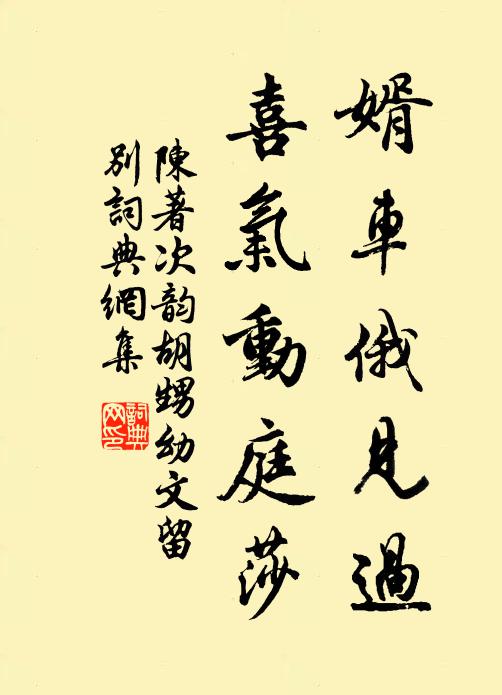 婿車俄見過
喜氣動庭莎
陳著次韵胡甥幼文留
別詞典網集
詞典
网印